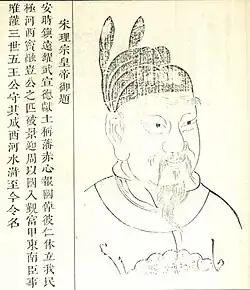 宋理宗皇帝御題
安時鎮遠耀武宣德獻土稱藩赤心報國偉彼仁休立我民
極河西竇融豈公之匹彼景迎周以國入覲富甲東南臣事
唯謹三世五王公守其成西河水滸至今令名